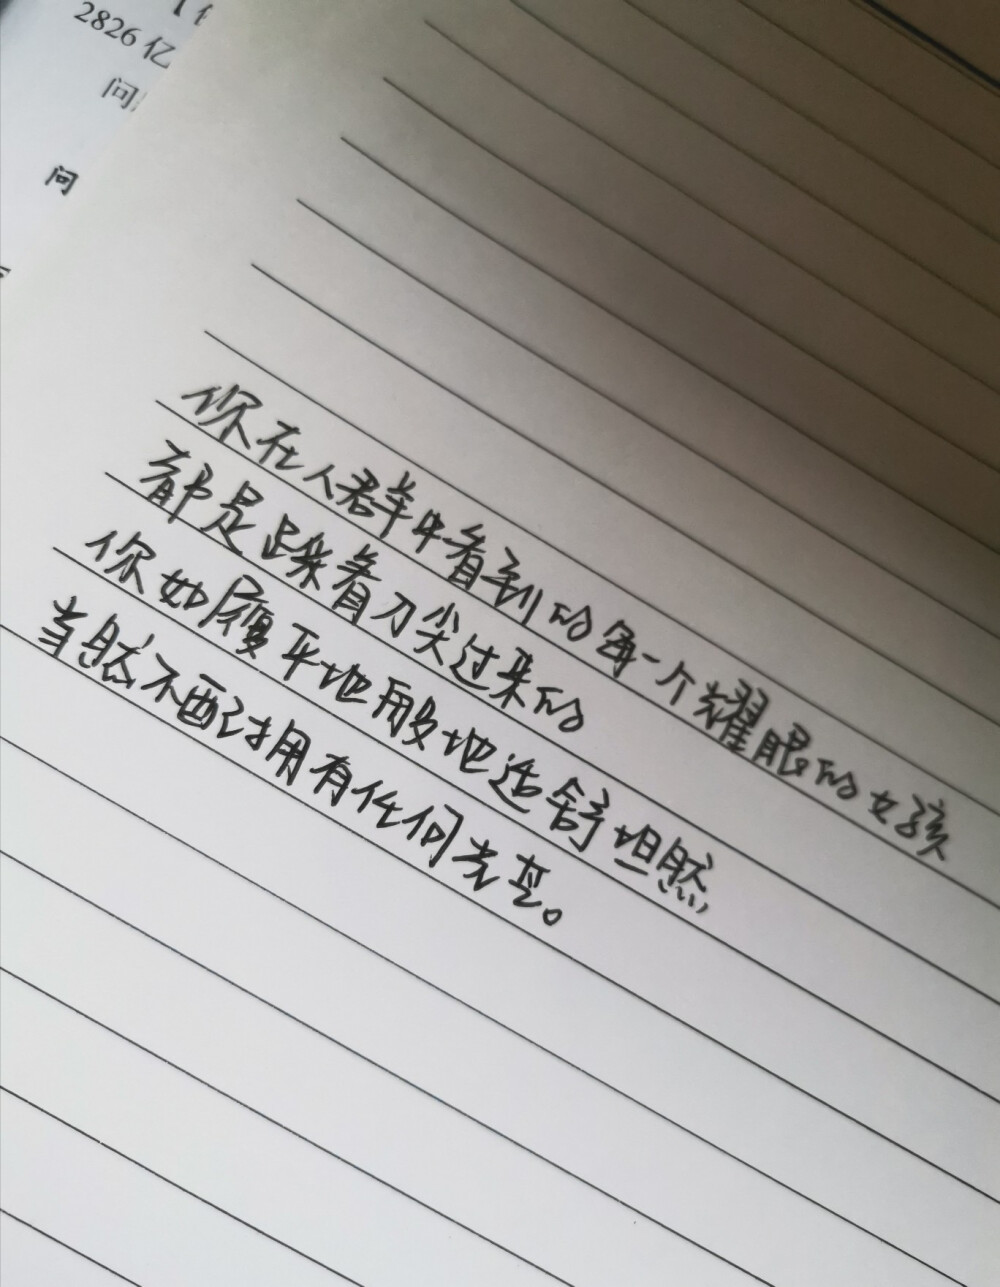 2826 亿
问
问
你在人群中看到的每一个耀眼的女孩
都是踩着刀尖过来的
你如履平地般地适舒坦然
当然不配讨拥有任何光芒。